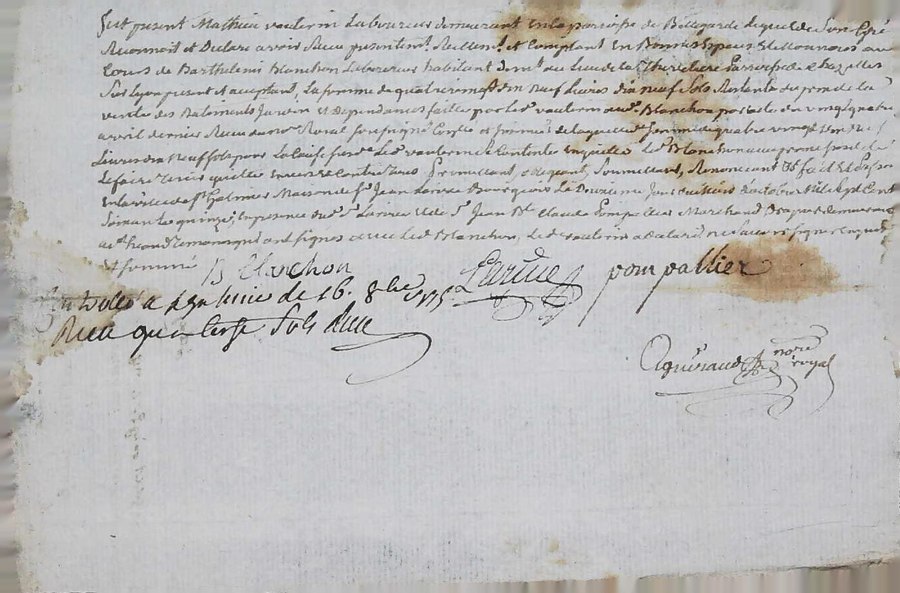 fut present Mathieu vouterin Laboureur demeurant En la parroisse de Bellegarde lequel de Son Gré
Reconnoit et Declare avoir Receu presentemt. Reellemt. et Comptant En Bonnes Especes de Monnoies au
Cours de Barthelemi Blanchon Laboureur habitant demt. au Lieu de la Parroisse de Chazelles
Sur Lyon present et acceptant, La somme de quatre vingt dix neuf Livres dix neuf Sols Restante du prix de la
vente des Batiments Jardin et dependances faitte par led. vouterin aud. Blanchon par acte du vingt quatre
avril dernier Receu du nre. Royal Soussigné et de laquelle Somme de quatre vingt dix neuf
Livres dix neuf Sols pour La Led. vouterin Se Contente En quitte led. Blanchon avec promesse de
Le faire tenir quitte Envers et Contre tous promettant, obligeant, Soumettant, Renonceant &c fait et passé
En la ville de St. Galmier Maison de Sr. Jean Larüe Bourgeois Le Douzieme Jour octobre Mil Sept Cent
Soixante quinze, En presence dud. Sr. Larüe et de Sr. Jean Bt. Claude Pompallier Marchand demeurant
aud. St. qui ont Signes avec Led. Blanchon, Led. vouterin a declaré ne Savoir Signer Enquis
et Sommé B Blanchon Larüe pompallier
Controlé a St. galmier le 16. 8bre 1775
Receu quatorze Sols Larüe
Aguiraud nore. royal